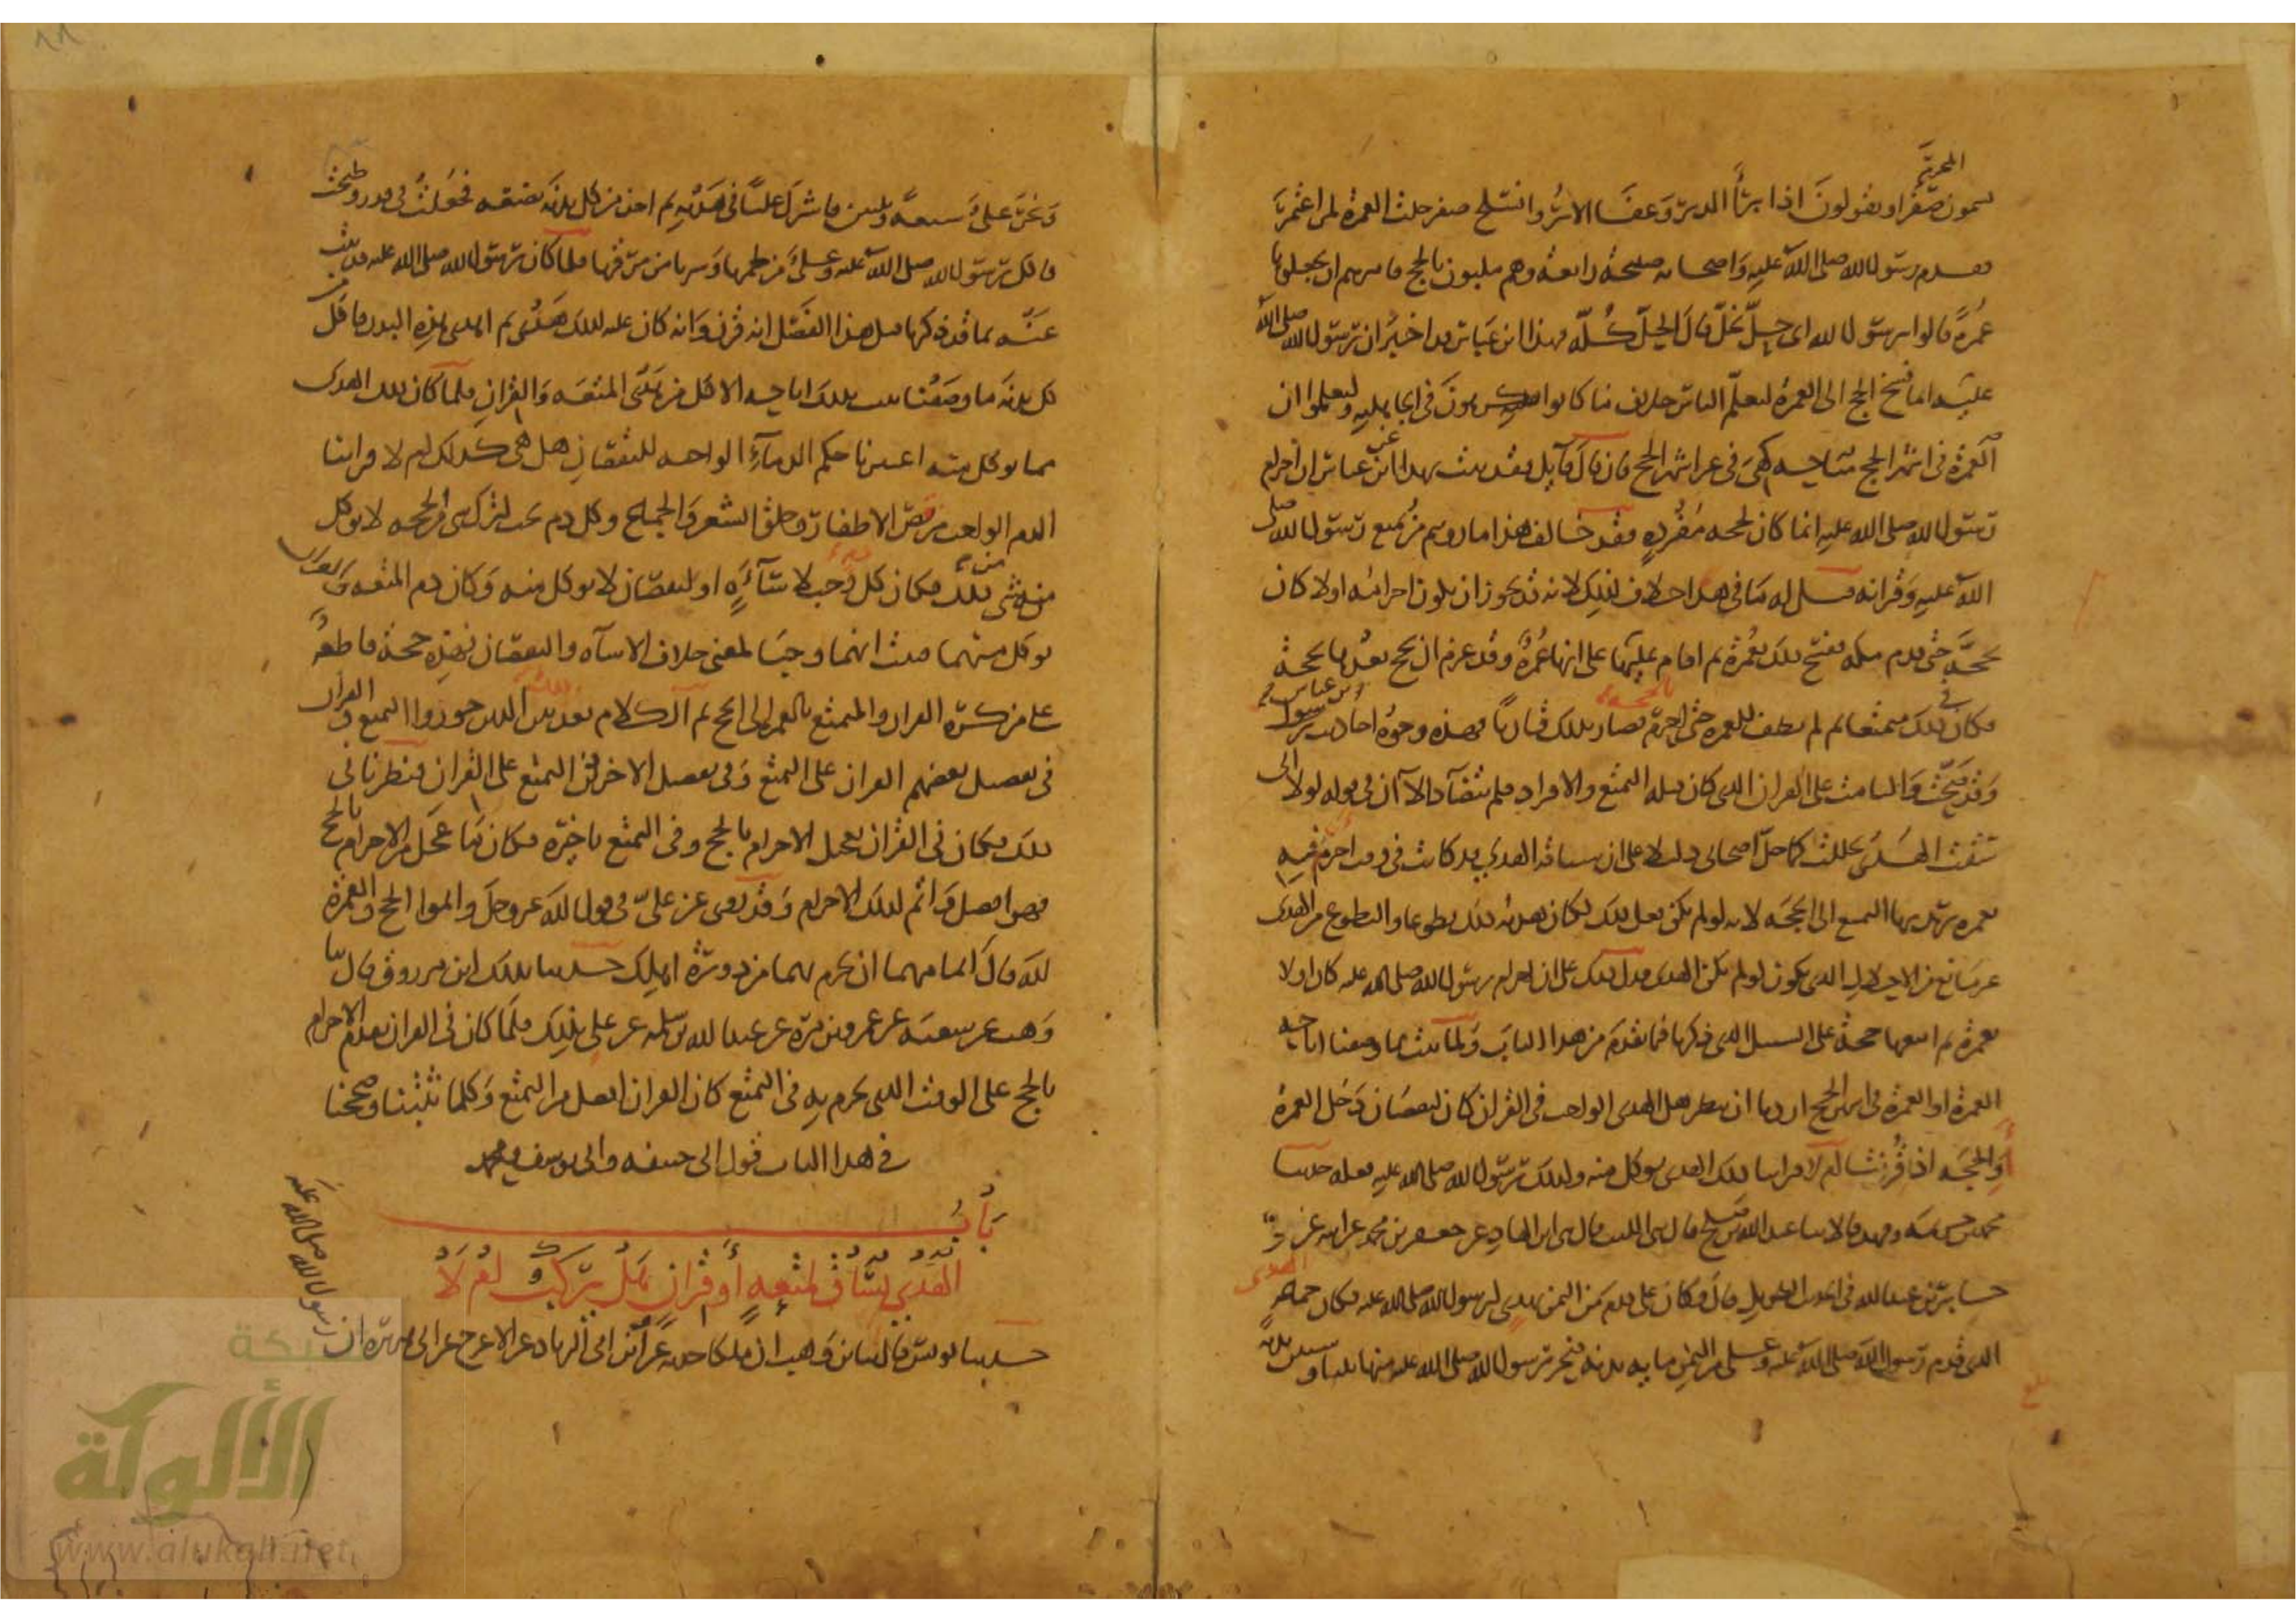 المحرم
يسمون صفرا ويقولون اذا برأ الدبر وعفا الاثر وانسلخ صفر حلت العمرة لمن اعتمر
فقدم رسول الله صلى الله عليه واصحابه صبيحة رابعة وهم ملبون بالحج فامرهم ان يجعلوها
عمرة قالوا يرسول الله اى حل نحل قال الحل كله فهذا ابن عباس قد اخبر ان رسول الله صلى الله
عليه انما فسخ الحج الى العمرة ليعلم الناس خلاف ما كانوا يكرهون فى الجاهلية وليعلموا ان
العمرة فى اشهر الحج مباحة كهى فى غير اشهر الحج فان قال قايل فقد ثبت بهذا عن ابن عباس ان احرام
رسول الله صلى الله عليه انما كان بحجة مفردة فقد خالف هذا ما رويتم من تمتع رسول الله صلى
الله عليه وقرانه قيل له ما فى هذا خلاف لذلك لانه قد يجوز ان يكون احرامه اولا كان
بحجة حتى قدم مكة ففسخ ذلك بعمرة ثم اقام عليها على انها عمرة وقد عزم ان يحج بعدها بحجة
فكان فى ذلك متمتعا ثم لم يطف للعمرة حتى احرم بالحجة فصار بذلك قارنا فهذه وجوه احاديث ابن عباس
وقد صحت والتامت على القران الذى كان قبله التمتع والافراد فلم تتضاد الا ان فى قوله لولا انى
سقت الهدى لحللت كما حل اصحابى دليلا على ان سياقه الهدى قد كانت فى وقت احرم فيه
بعمرة يريد بها التمتع الى الحجة لانه لو لم يكن فعل ذلك لكان هديه ذلك تطوعا والتطوع من الهدى
غير مانع من الاحلال الذى يكون لو لم يكن الهدى فدل ذلك على ان احرام رسول الله صلى الله عليه كان اولا
بعمرة ثم اتبعها حجة على السبيل الذى ذكرنا فيما تقدم من هذا الباب ولما ثبت بما وصفنا اباحة
العمرة فى اشهر الحج اردنا ان ننظر هل الهدى الواجب فى القران كان لنقصان دخل العمرة
او الحجة اذ قرنتا ام لا فراينا ذلك الهدى يوكل منه وكذلك رسول الله صلى الله عليه فعله حدثنا
محمد بن خزيمة وفهد قالا ثنا عبد الله بن صلح قال ثنى الليث قال ثنى ابن الهاد عن جعفر بن محمد عن ابيه عن
جابر بن عبد الله فى الحديث الطويل قال وكان على قدم من اليمن بهدى لرسول الله صلى الله عليه فكان جماعة الهدى
الذى قدم رسول الله صلى الله عليه وعلى من اليمن مايه بدنة فنحر رسول الله صلى الله عليه منها ثلثا وستين بدنة
بلغ
ونحر على سبعة وثلثين فاشرك عليا فى هديه ثم اخذ من كل بدنة بضعة فجعلت فى قدر وطبخت
فاكل رسول الله صلى الله عليه وعلى من لحمها وشربا من مرقها فلما كان رسول الله صلى الله عليه قد ثبت
عنه بما قد ذكرنا قبل هذا الفصل انه قرن وانه كان عليه لذلك هدى ثم اهدى هذه البدن فاكل من
كل بدنة ما وصفنا ثبت بذلك اباحة الاكل من هدى المتعة والقران فلما كان ذلك الهدى
مما يوكل منه اعتبرنا حكم الدماء الواجبة للنقصان هل هى كذلك ام لا فراينا
الدم الواجب من قص الاظفار وحلق الشعر والجماع وكل دم يجب لترك شى من الحجة لا يوكل
منه شى من ذلك فكان كل دم وجب لاساءة او لنقصان لا يوكل منه وكان دم المتعة والقران
يوكل منهما فثبت انهما وجبا لمعنى خلاف الاساه والنقصان فهذه حجة قاطعة
على من كره القران والتمتع بالعمرة الى الحج ثم الكلام بعد بين الذين جوزوا التمتع والقران
فى تفضيل بعضهم القران على التمتع وفى تفضيل الاخرين التمتع على القران فنظرنا فى
ذلك فكان فى القران تعجيل الاحرام بالحج وفى التمتع تاخيره فكان ما عجل من الاحرام بالحج
فهو افضل واتم لذلك الاحرام وقد روى عن على فى قول الله عز وجل واتموا الحج والعمرة
لله قال اتمامهما ان تحرم بهما من دويرة اهلك حدثنا بذلك ابن مرزوق قال ثنا
وهب عن شعبة عن عمرو بن مرة عن عبد الله بن سلمة عن على بذلك فلما كان فى القران تقديم الاحرام
بالحج على الوقت الذى يحرم به فى التمتع كان القران افضل من التمتع وكلما ثبتنا وصححنا
فى هذا الباب قول ابى حنيفة وابى يوسف ومحمد
باب
الهدى يساق لمتعة او قران هل يركب ام لا
حدثنا يونس قال ثنا ابن وهب ان ملكا حدثه عن ابى الزناد عن الاعرج عن ابى هريرة ان
رسول الله صلى الله عليه
شبكة
الألوكة
www.alukah.net